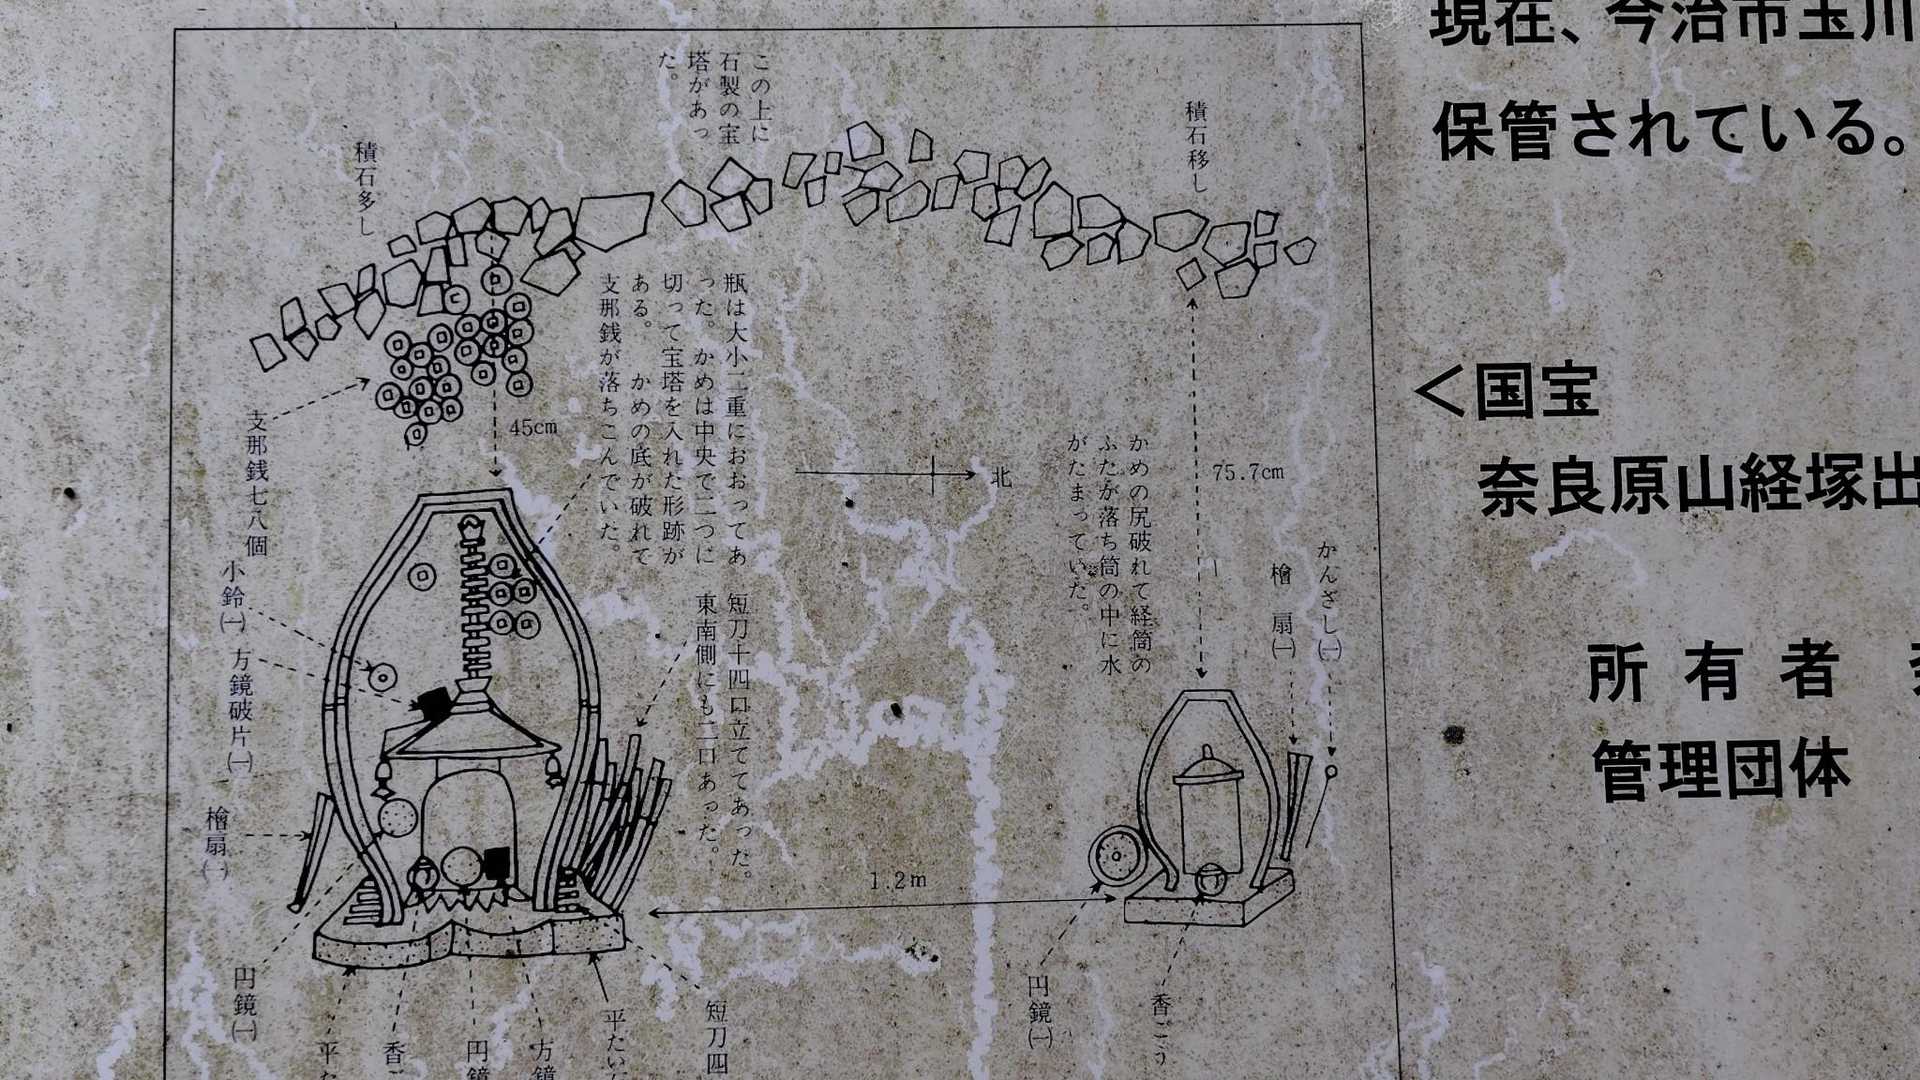 現在、今治市玉川
保管されている。
<国宝
奈良原山経塚出
所有者
管理団体
この上に
石製の宝
塔があっ
た。
積石多し
積石移し
瓶は大小二重におおってあ
った。かめは中央で二つに
切って宝塔を入れた形跡が
ある。かめの底が破れて
支那銭が落ちこんでいた。
45cm
北
かめの尻破れて経筒の
ふたが落ち筒の中に水
がたまっていた。
75.7cm
かんざし㈠
檜扇㈠
支那銭七八個
小鈴㈠
方鏡破片㈠
檜扇㈠
短刀十四口立ててあった。
東南側にも二口あった。
1.2m
円鏡㈠
平た
香ご
円鏡
方鏡
平たい
短刀四
円鏡㈠
香ごう